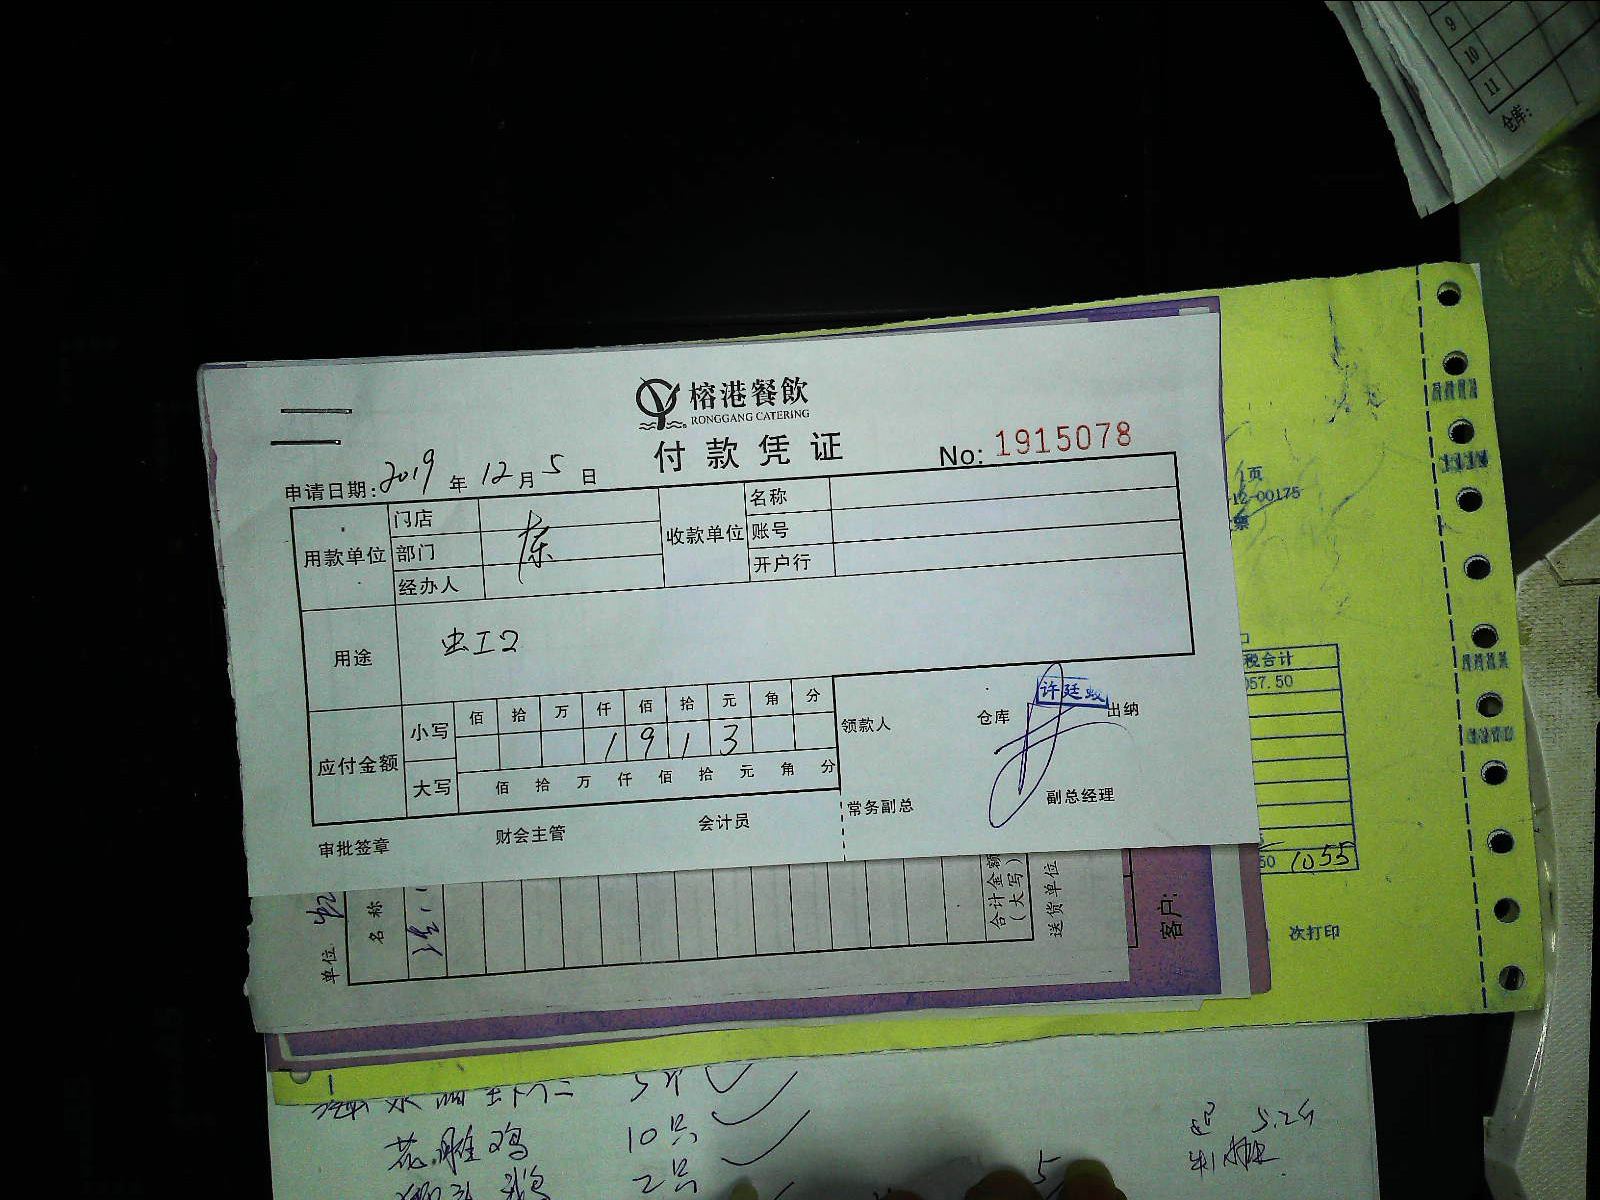 9
10
11
仓库:
榕港餐飲
RONGGANG CATERING
付款凭证
No: 1915078
申请日期: 2019 年 12 月 5 日
用款单位 门店 收款单位 名称
部门 东 账号
经办人 开户行
用途
应付金额 小写 佰 拾 万 仟 佰 拾 元 角 分
1 9 1 3
大写 佰 拾 万 仟 佰 拾 元 角 分
领款人 仓库 许廷 出纳
常务副总 副总经理
审批签章 财会主管 会计员
页
12-00175
税合计
057.50
50 1055
次打印
单位
名称
合计金额
(大写)
送货单位
客户:
花雕鸡 10只
2只
5